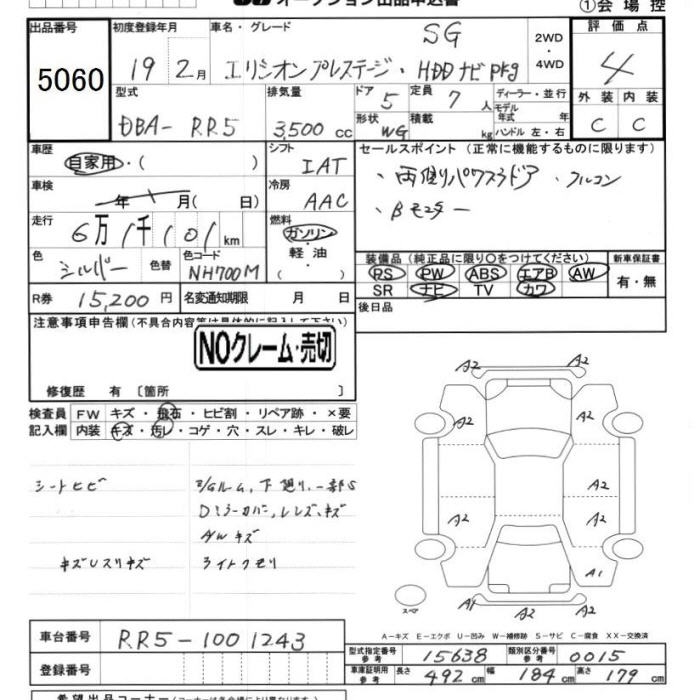 オークション出品申込書
①会場控
出品番号 初度登録年月 車名・グレード SG 2WD ・4WD 評価点
5060 19 2月 エリシオンプレステージ・HDDナビpkg 4
型式 排気量 ドア 5 定員 7人 ディーラー・並行 外装 内装
モデル年式 年式
DBA- RR5 3,500cc 形状 WG 積載 kg ハンドル 左・右 C C
車歴 シフト セールスポイント (正常に機能するものに限ります)
自家用・( ) IAT
車検 冷房 ・両側パワスラドア ・フルコン
年 月( 日) AAC ・Bモニター
走行 6万1千101km 燃料 ガソリン・軽油
装備品 (純正品に限り○をつけてください) 新車保証書
色 シルバー 色替 色コード NH700M
PS PW ABS エアB AW 有・無
SR ナビ TV カワ
R券 15,200円 名変通知期限 月 日 後日品
注意事項申告欄(不具合内容等は具体的に記入して下さい)
NOクレーム・売切
修復歴 有〔箇所 〕
検査員 FW キズ・飛石・ヒビ割・リペア跡・×要
記入欄 内装 キズ・汚レ・コゲ・穴・スレ・キレ・破レ
シートヒビ E/Gルーム,下廻り,一部S
Dミラーカバー,レンズ,キズ
AWキズ
キズUスリキズ ライトクモリ
A2 A2
A2 A2
A2
A2 A2
A1
スペア A1 A2 A2
A-キズ E-エクボ U-凹み W-補修跡 S-サビ C-腐食 XX-交換済
車台番号 RR5-1001243
型式指定番号 参考 15638 類別区分番号 参考 0015
登録番号
車庫証明用 参考 長さ 492cm 幅 184cm 高さ 179cm
希望出品コーナー